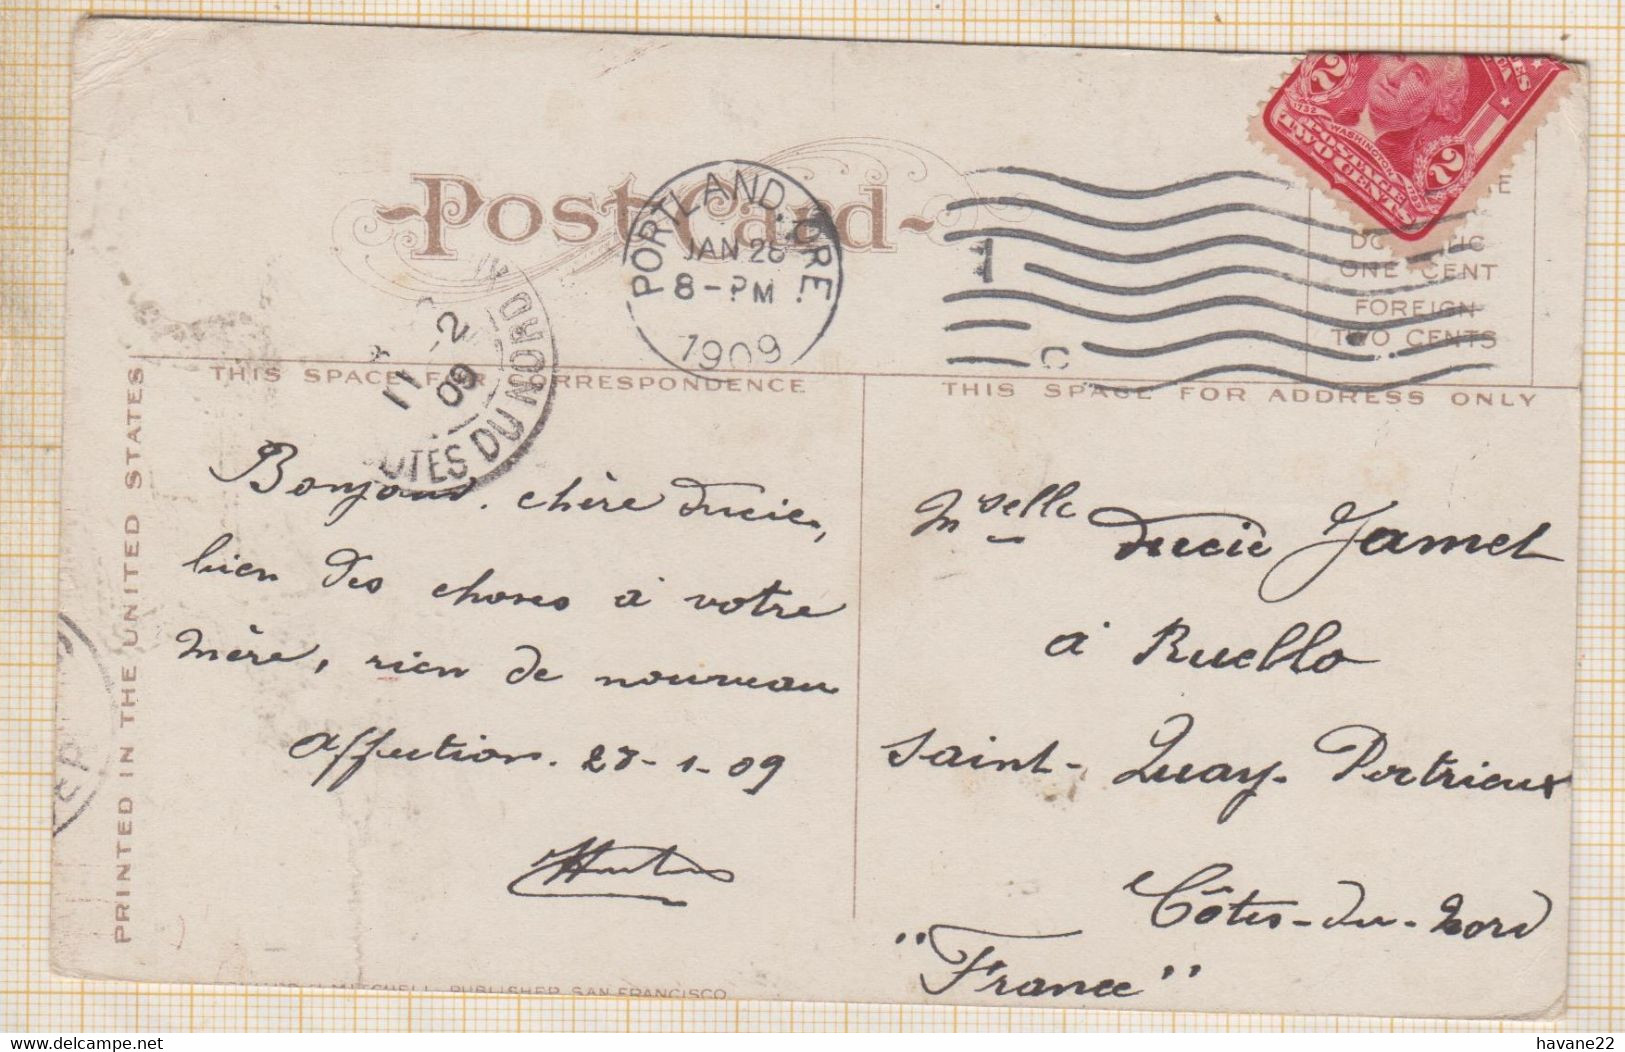 Post Card
PORTLAND, ORE.
JAN 28
8-PM
1909
1
C
2 2
WASHINGTON
POSTAGE
TWO CENTS
DOMESTIC
ONE CENT
FOREIGN
TWO CENTS
11 -2
09
COTES DU NORD
THIS SPACE FOR CORRESPONDENCE
THIS SPACE FOR ADDRESS ONLY
PRINTED IN THE UNITED STATES
Bonjour chère Lucie,
bien des choses à votre
mère, rien de nouveau
affection. 28-1-09
Mselle Lucie Jamet
à Ruello
Saint-Quay-Portrieux
Côtes-du-Nord
"France"
EDWARD H MITCHELL, PUBLISHER, SAN FRANCISCO
havane22